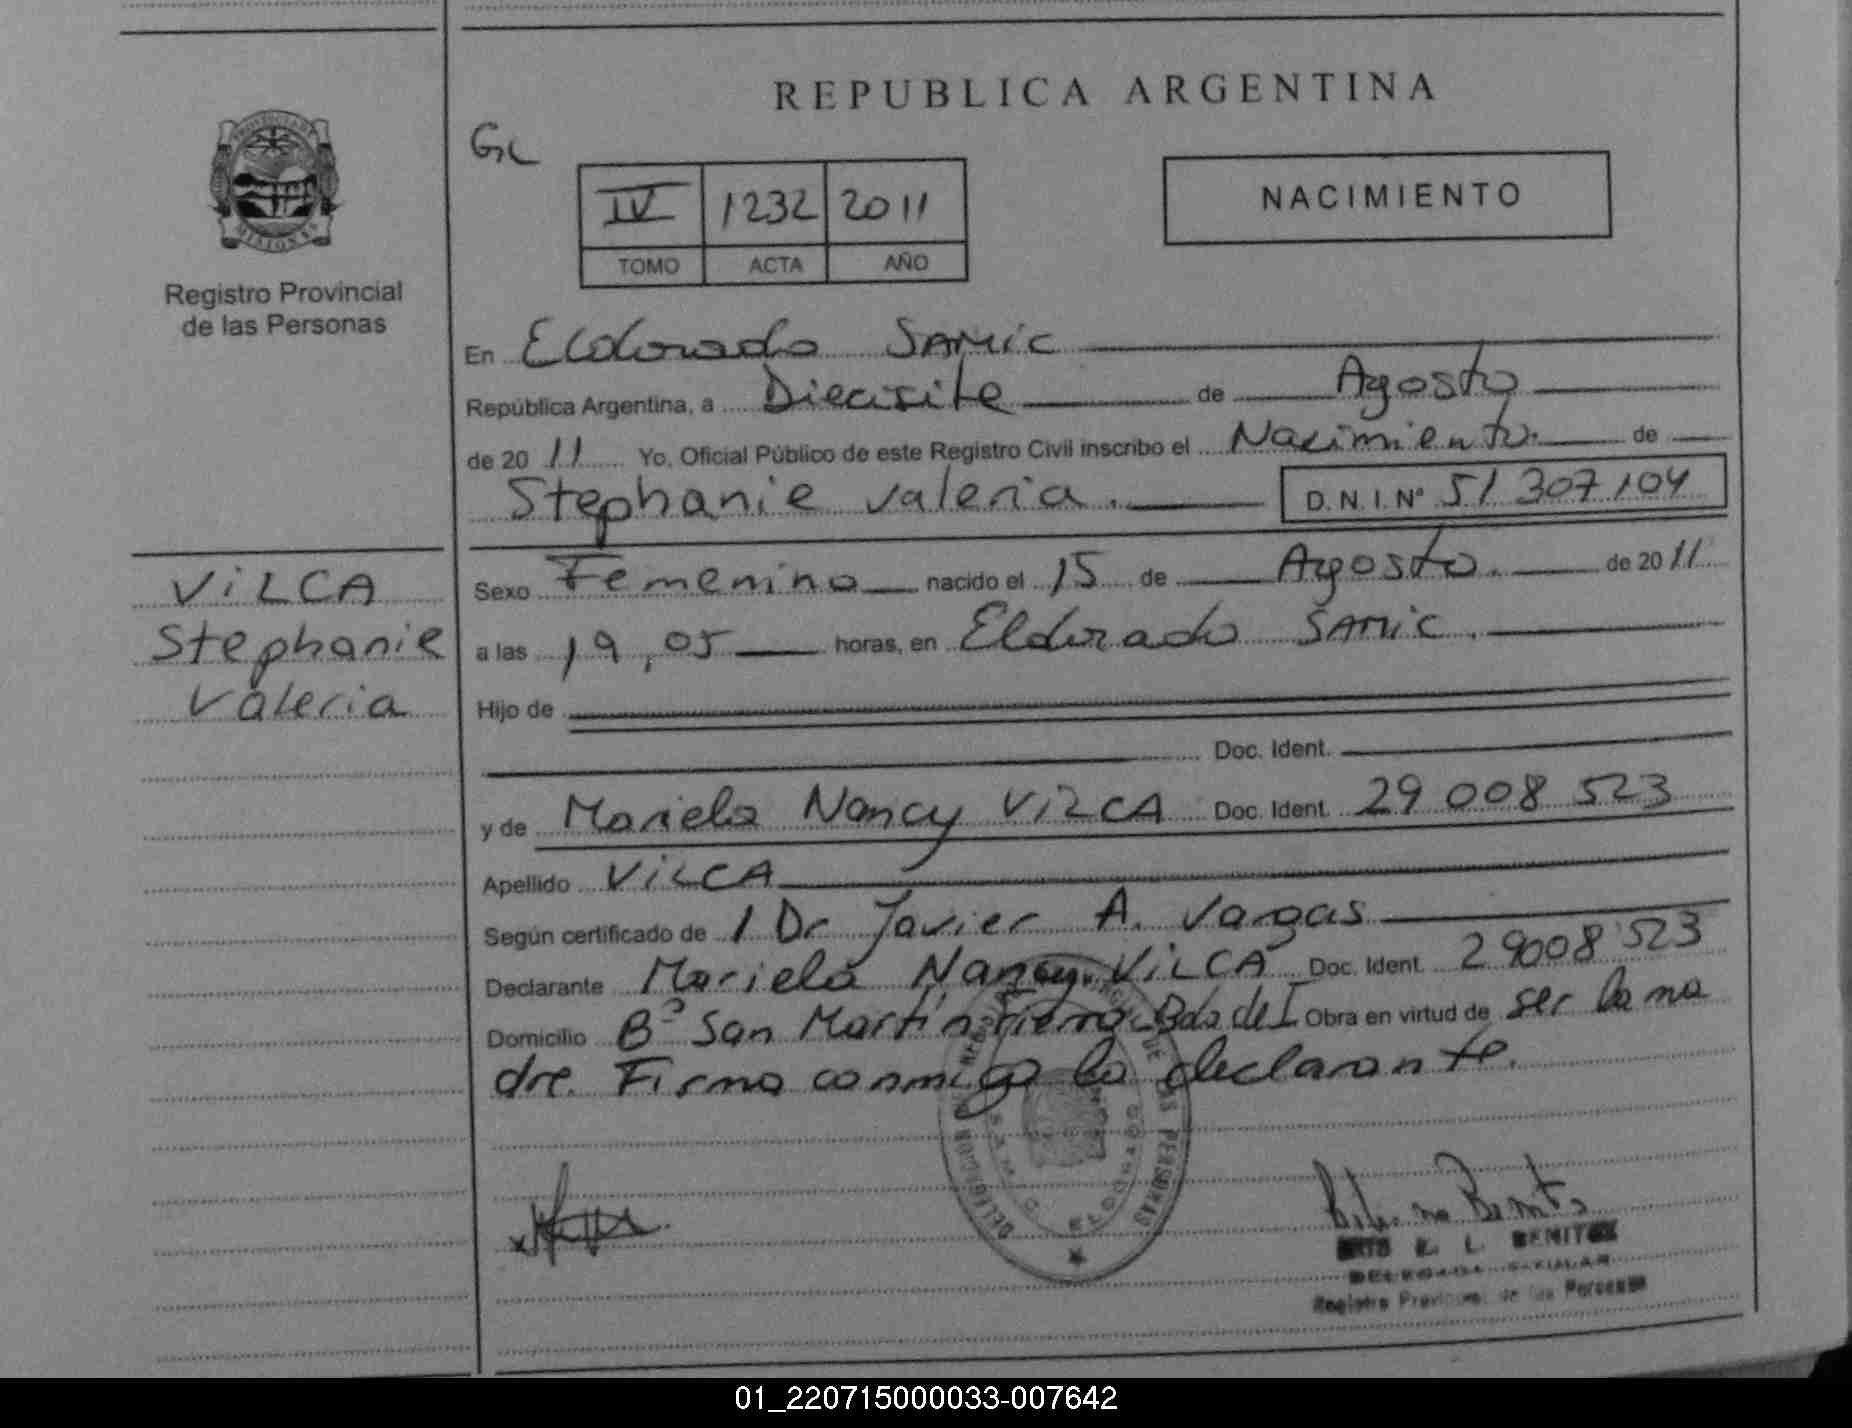 REPUBLICA ARGENTINA
GL
IV 1232 2011
TOMO ACTA AÑO
NACIMIENTO
PROVINCIA DE
MISIONES
Registro Provincial
de las Personas
En Eldorado SAMIC
República Argentina, a Diecisite de Agosto
de 2011 Yo, Oficial Público de este Registro Civil inscribo el Nacimiento. de
Stephanie Valeria. D.N.I.Nº 51 307 104
VILCA
Stephanie
Valeria
Sexo Femenino nacido el 15 de Agosto. de 2011
a las 19,05 horas, en Eldorado SAMIC.
Hijo de
Doc. Ident.
y de Mariela Nancy VILCA Doc. Ident. 29 008 523
Apellido VILCA
Según certificado de 1 Dr Javier A. Vargas
Declarante Mariela Nancy VILCA Doc. Ident. 29008523
Domicilio Bº San Martín Obra en virtud de ser la ma
dre. Firma conmigo la declarante.
DELEGACION DE LAS PERSONAS
E. L. BENITEZ
DELEGADA TITULAR
Registro Provincial de las Personas
01_220715000033-007642